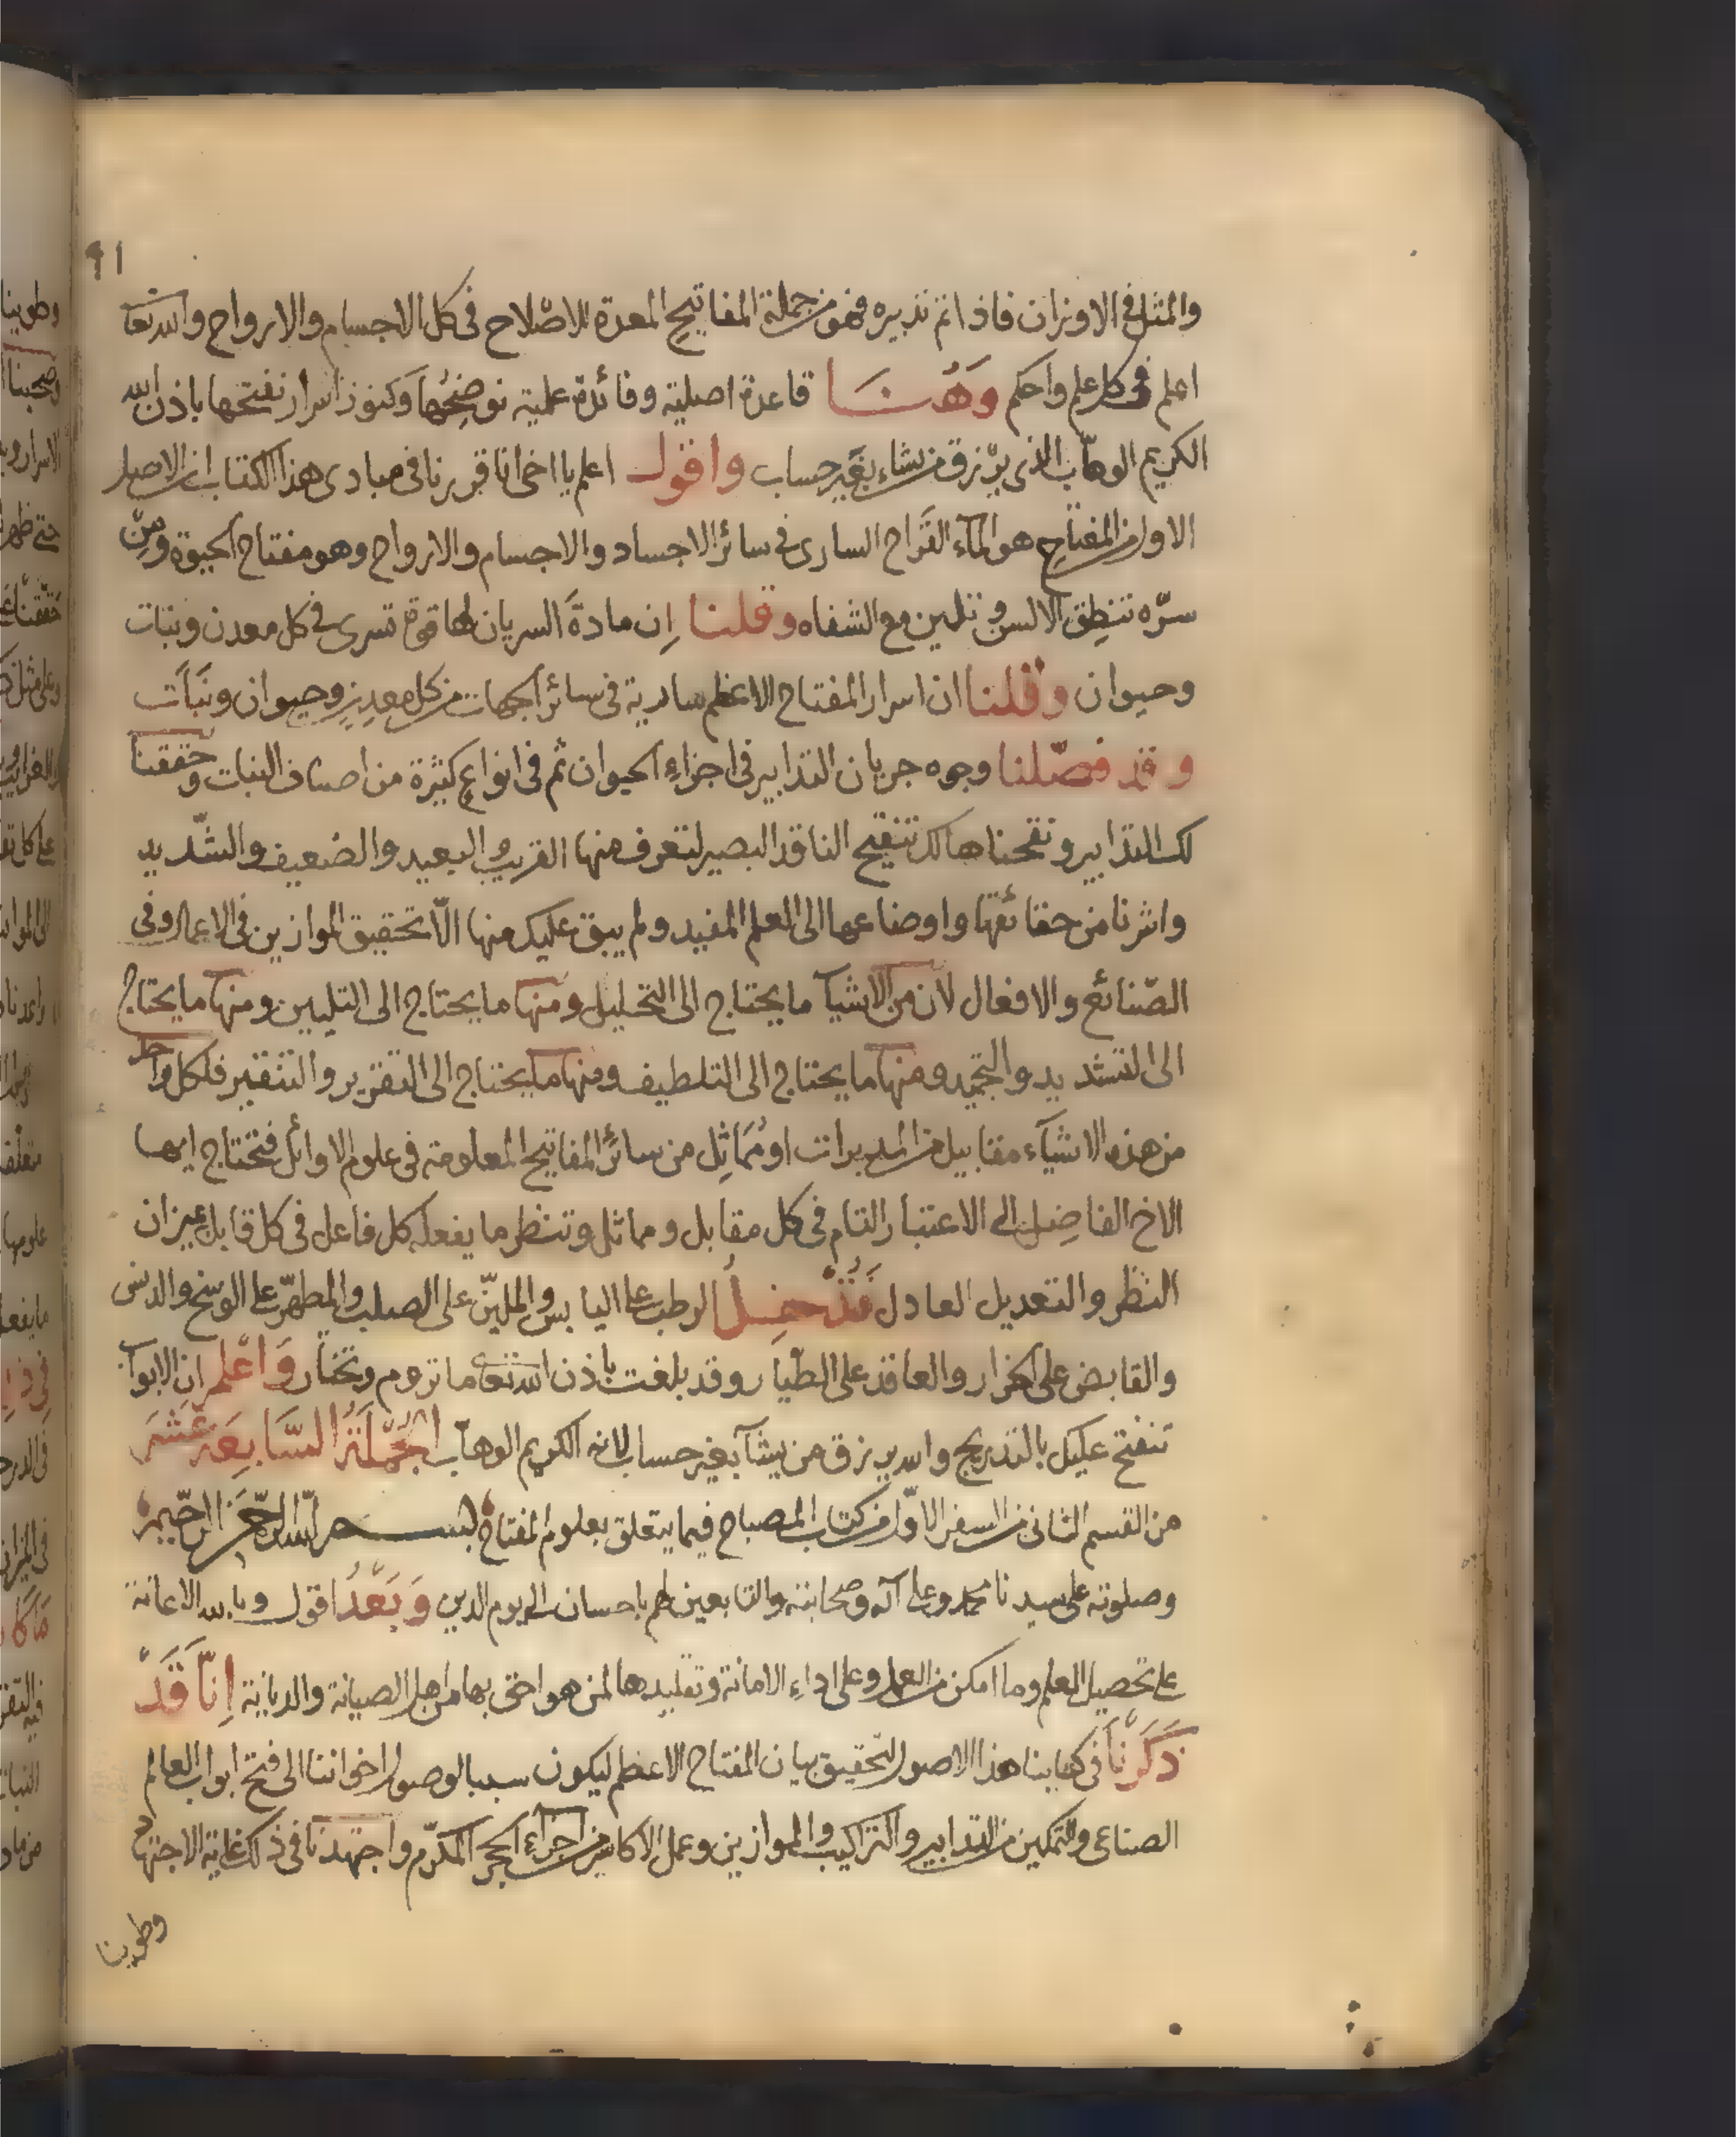 ٩١
والمثل فى الاوزان فاذا تم تدبيره فهو من جملة المفاتيح المعدة للاصلاح فى كل الاجسام والارواح والله تعا
اعلم فى كل علم واحكم وَهُنَا قاعدة اصلية وفائدة علمية نوضحُها وكنوز اسرار نفتحها باذن الله
الكريم الوهّاب الذى يرزق من يشاء بغير حساب واقول اعلم يا اخى انا قررنا فى مبادى هذا الكتاب ان الاصل
الاول من المفتاح هو المآء القَراح السارى فى سائر الاجساد والاجسام والارواح وهو مفتاح الحيوة ومِن
سرّه تنطِق الالسن وتلين مع الشفاه وقلنا اِن مادةَ السريان لها قوة تسرى فى كل معدن ونبات
وحيوان وقلنا ان اسرار المفتاح الاعظم سارية فى سائر الجهات من كل معدِنٍ وحيوان ونَبَات
وقد فصّلنا وجوه جريان التدابير فى اجزاءِ الحيوان ثم فى انواعٍ كثيرة من اصناف النبات وحققنا
لك التدابير ونقحناها لك تنقيح الناقد البصير لتعرف منها القريب والبعيد والضعيف والشّديد
واشرنا من حقائقها واوضاعها الى العلم المفيد ولم يبق عليك منها الّا تحقيق الموازين فى الاعمال وفى
الصّنائع والافعال لان من الاشيآ ما يحتاج الى التحليل ومنها ما يحتاج الى التليين ومنها ما يحتاج
الى التشديد والتجميد ومنها ما يحتاج الى التلطيف ومنها ما يحتاج الى التقرير والتنقير فلكل واحد
من هذه الاشيآء مقابيل من المدبرات او مُمَاثِل من سائر المفاتيح المعلومة فى علوم الاوائل فتحتاج ايها
الاخ الفاضِل الى الاعتبار التام فى كل مقابل ومماثل وتنظر ما يفعله كل فاعل فى كل قابل بميزان
النظر والتعديل العادل فَتُدْخِلُ الرطب على اليابس والمليّن على الصلب والمطهّر على الوسخ والدنس
والقابض على الخرار والعاقد على الطيار وقد بلغت باذن الله تعا ما تروم وتختار وَاعْلم ان الابوآب
تنفتح عليك بالتدريج والله يرزق من يشآ بغير حساب لانه الكريم الوهآب الجُمْلَةُ السَّابِعَة عَشَرَ
من القسم الثانى من السفر الاوّل من كتاب المصباح فيما يتعلق بعلوم المفتاح بسم الله الرحمن الرحيم
وصلوته على سيدنا محمد وعلى آله وصحابته والتابعين لهم باحسان الى يوم الدين وَبَعْدُ اقول وبالله الاعانة
على تحصيل العلم وما امكن من العمل وعلى اداءِ الامانة وتقليدها لمن هو احق بها من اهل الصيانة والديانة اِنّا قَدْ
ذَكَرْنَا فى كتابنا هذا الاصول لتحقيق بيان المفتاح الاعظم ليكون سببا لوصول اخواننا الى فتح ابواب العالم
الصناعى والتمكين من التدابير والتراكيب والموازين وعمل الاكاسير من اجزآء الحجر المكرّم واجتهدنا فى ذلك غاية الاجتهاد
وطوينا